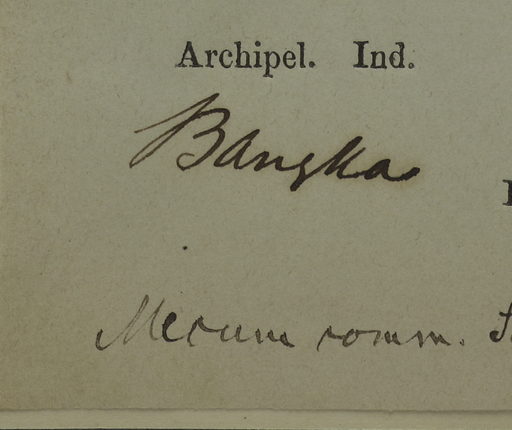 Archipel. Ind.
Bangka
Mecum comm.